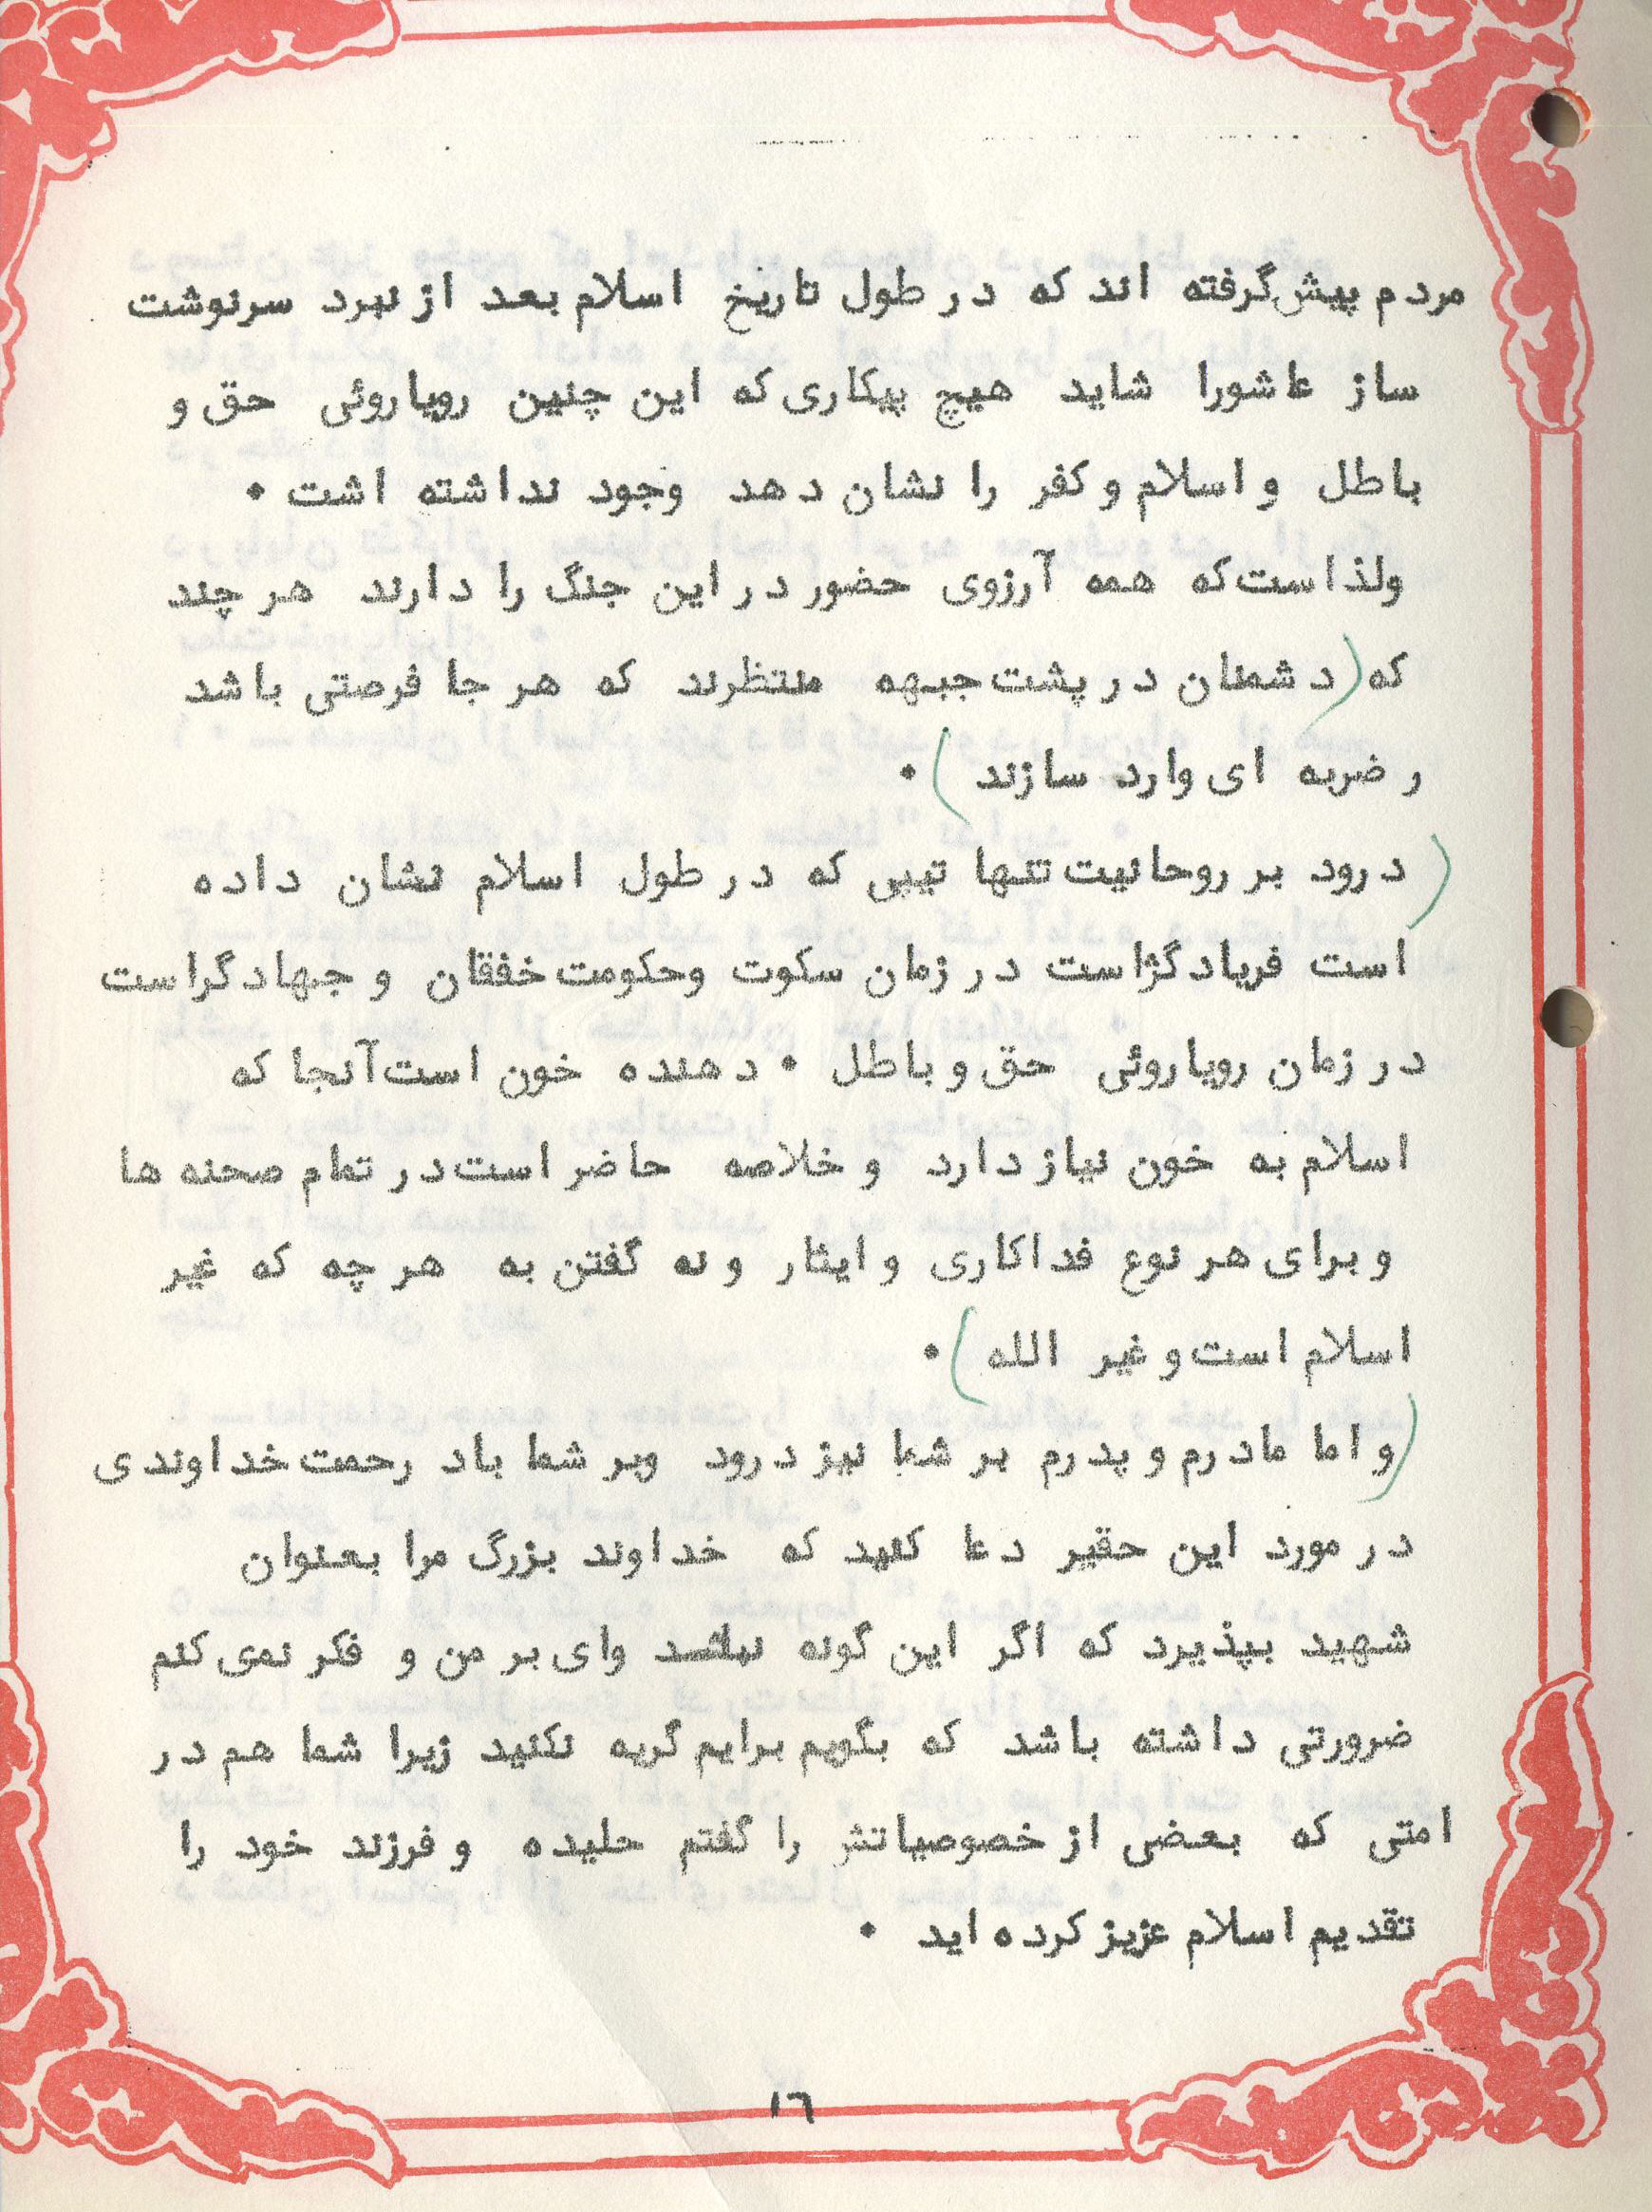 مردم پیش گرفته اند که در طول تاریخ اسلام بعد از نبرد سرنوشت
ساز عاشورا شاید هیچ پیکاری که این چنین رویاروئی حق و
باطل و اسلام و کفر را نشان دهد وجود نداشته اشت •
ولذا است که همه آرزوی حضور در این جنگ را دارند هر چند
که (دشمنان در پشت جبهه منتظرند که هر جا فرصتی باشد
ر ضربه ای وارد سازند) •
(درود بر روحانیت تنها تیپی که در طول اسلام نشان داده
است فریاد گژاست در زمان سکوت وحکومت خفقان و جهاد گراست
در زمان رویاروئی حق و باطل • دهنده خون است آنجا که
اسلام به خون نیاز دارد و خلاصه حاضر است در تمام صحنه ها
و برای هر نوع فداکاری و ایثار و نه گفتن به هر چه که غیر
اسلام است و غیر الله) •
(و اما مادرم و پدرم بر شما نیز درود وبر شما باد رحمت خداوندی
در مورد این حقیر دعا کنید که خداوند بزرگ مرا بعنوان
شهید بپذیرد که اگر این گونه نباشد وای بر من و فکر نمی کنم
ضرورتی داشته باشد که بگویم برایم گریه نکنید زیرا شما هم در
امتی که بعضی از خصوصیاتش را گفتم حلیده و فرزند خود را
تقدیم اسلام عزیز کرده اید •
١٦